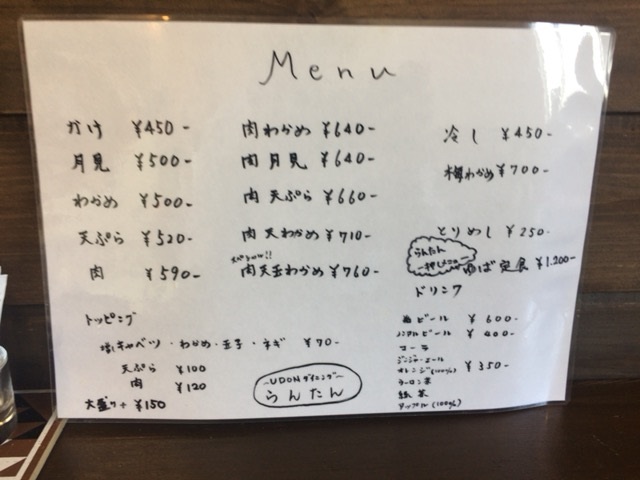 Menu
かけ ¥450-
月見 ¥500-
わかめ ¥500-
天ぷら ¥520-
肉 ¥590-
肉わかめ ¥640-
肉月見 ¥640-
肉天ぷら ¥660-
肉天わかめ ¥710-
肉天玉わかめ ¥760-
冷し ¥450-
梅わかめ ¥700-
とりめし ¥250-
らんたん
一押しメニュー
ゆば定食 ¥1,200-
トッピング
塩キャベツ・わかめ・玉子・ネギ ¥70-
天ぷら ¥100
肉 ¥120
大盛り+ ¥150
~UDONダイニング~
らんたん
ドリンク
ビール ¥600-
ノンアルビール ¥400-
コーラ
ジンジャーエール
オレンジ(100%) ¥350-
ウーロン茶
紅茶
アップル(100%)